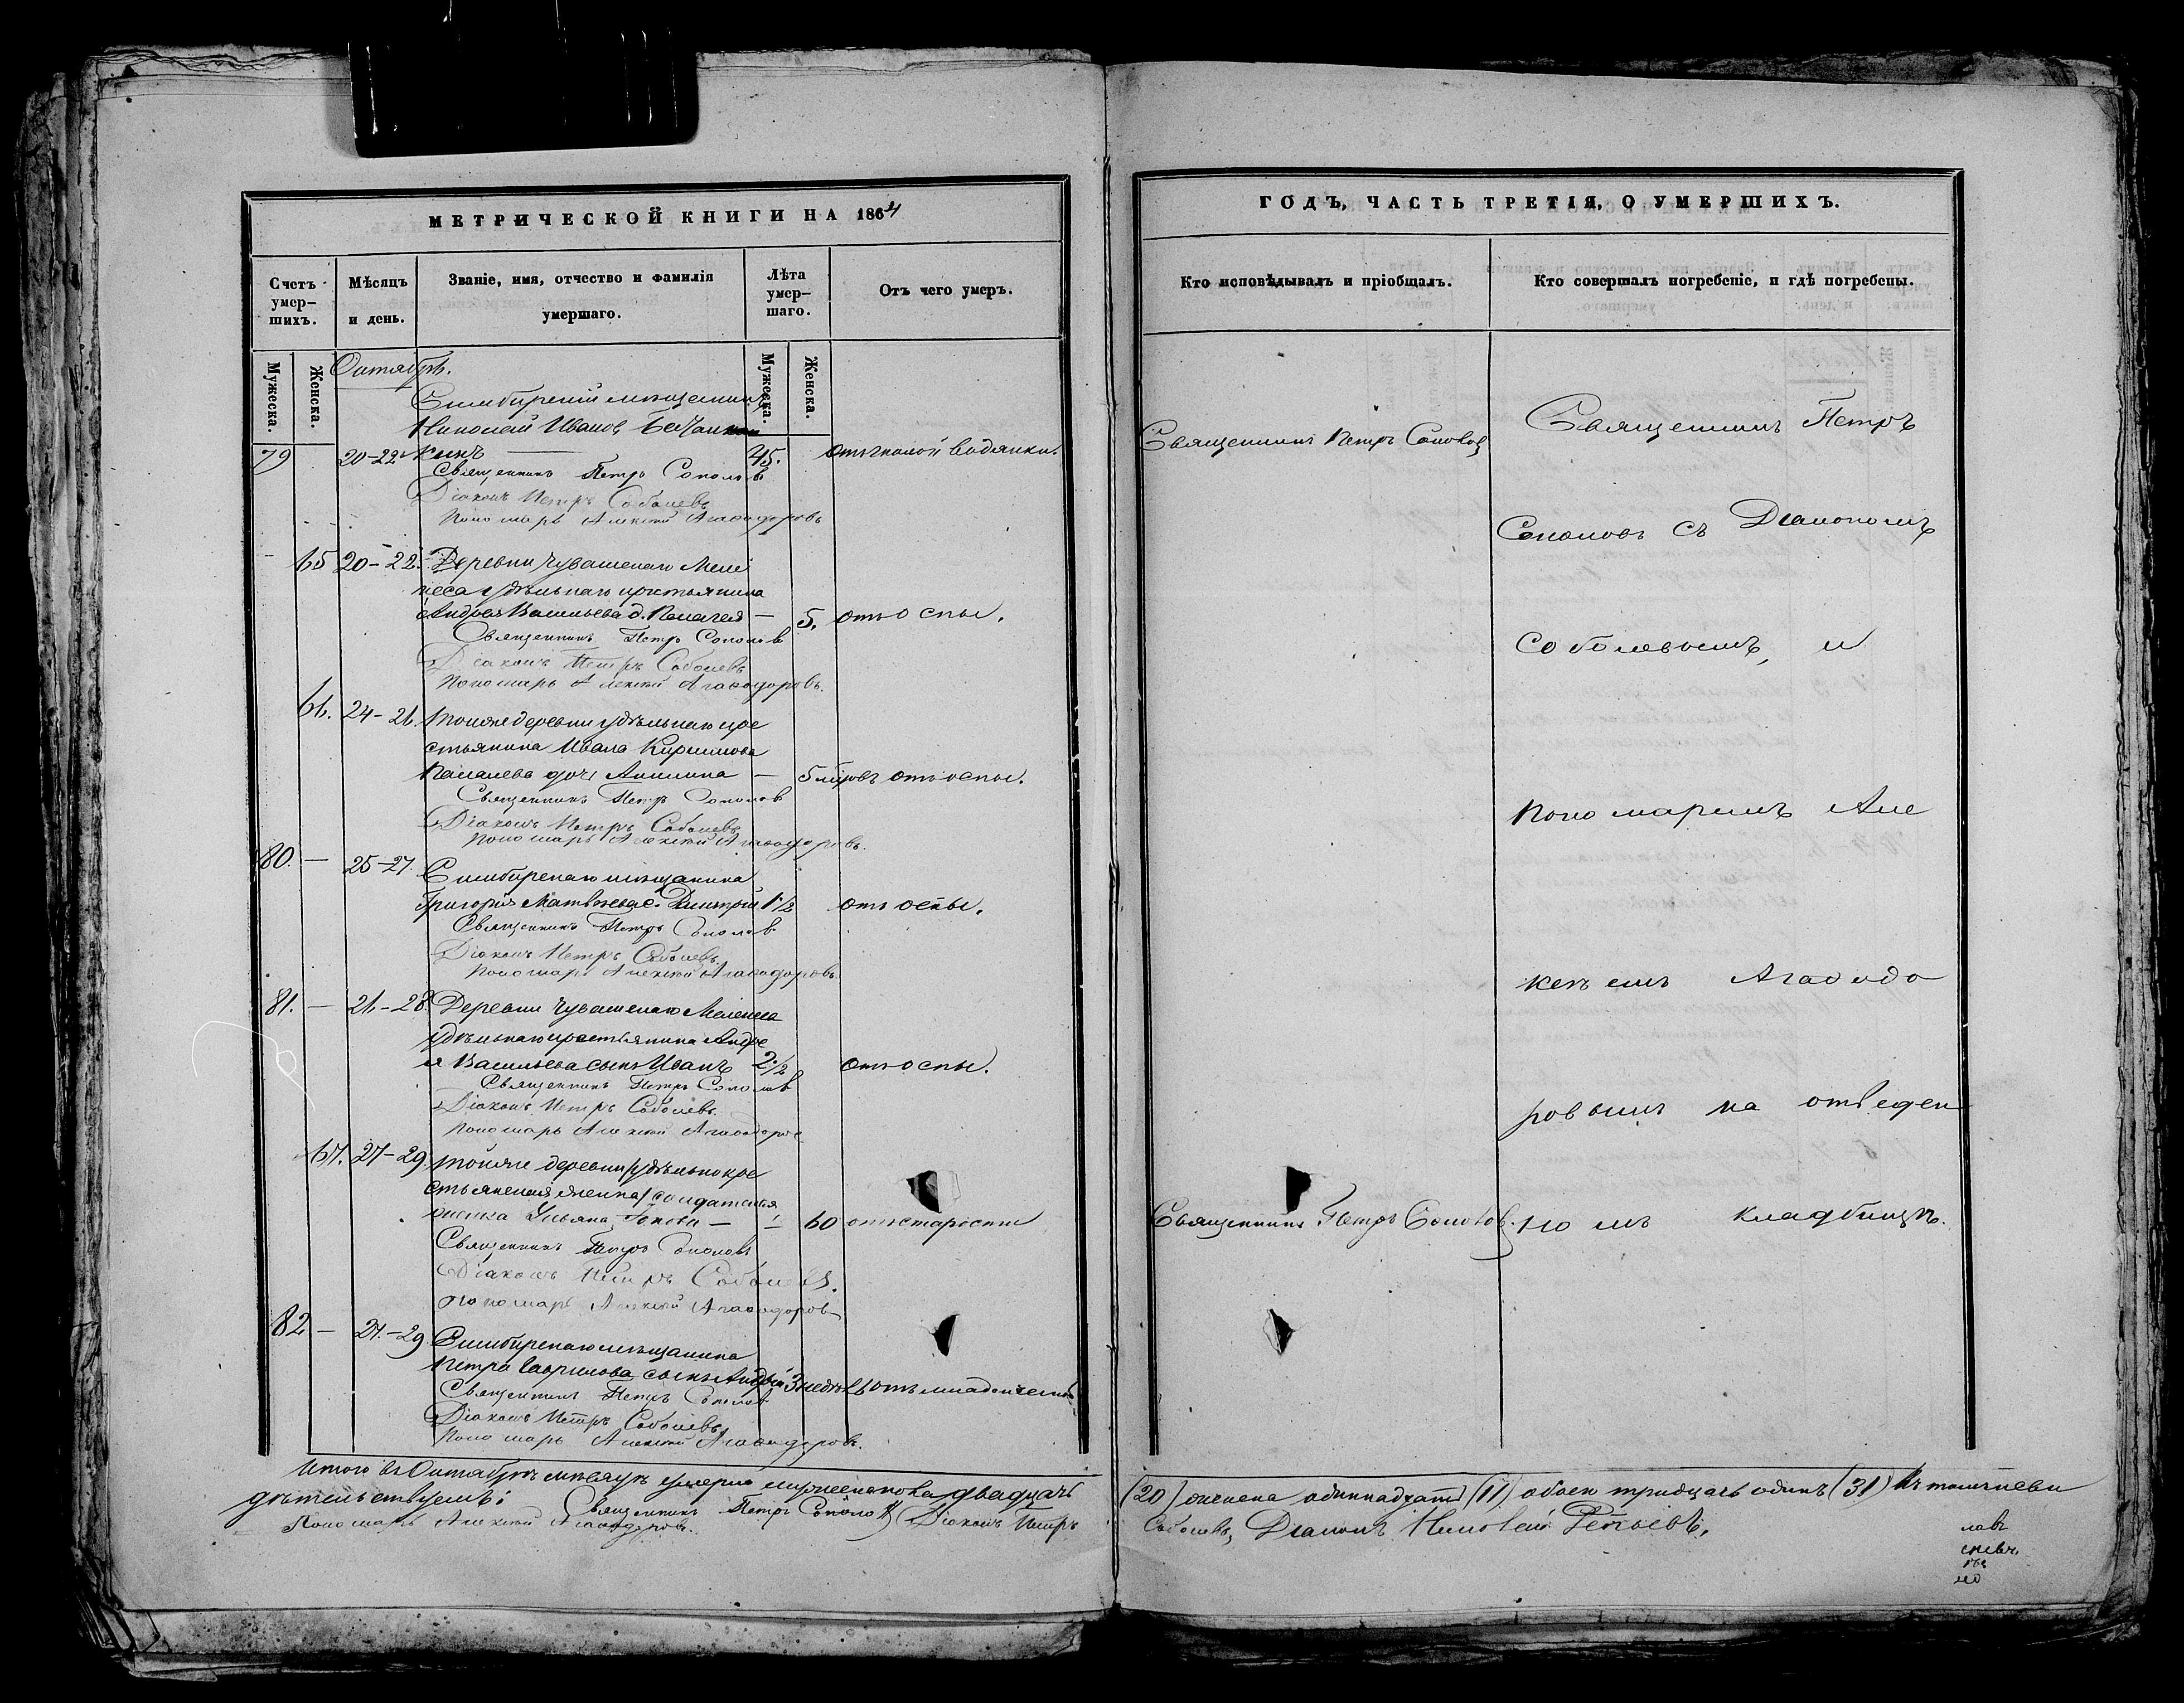 МЕТРИЧЕСКОЙ КНИГИ НА 1864
Счетъ умер-шихъ.
Мѣсяцъ и день.
Званіе, имя, отчество и фамилія умершаго.
Лѣта умер-шаго.
Отъ чего умеръ.
Мужеска.
Женска.
Мужеска.
Женска.
Октябрь.
Симбирскій мѣщанинъ
Николай Иванов
79 20-22 кинъ 45. отъ водянки.
Священникъ Петръ Соколовъ
Діаконъ Петръ Соболевъ
Пономарь Алексѣй Агаѳодоровъ
65 20-22. Деревни Чувашскаго Меле
кеса удѣльнаго крестьянина
Андрея Васильева д. Пелагея — 5. отъ оспы.
Священникъ Петръ Соколовъ
Діаконъ Петръ Соболевъ
Пономарь Алексѣй Агаѳодоровъ.
66. 24-26. Той же деревни удѣльнаго кре
стьянина Ивана Кирилова
дочь Акилина — 5 отъ оспы.
Священникъ Петръ Соколовъ
Діаконъ Петръ Соболевъ
Пономарь Алексѣй Агаѳодоровъ.
80. — 25-27. Симбирскаго мѣщанина
Григорія Матвѣева с. Димитрій 1 1/2 отъ оспы.
Священникъ Петръ Соколовъ
Діаконъ Петръ Соболевъ
Пономарь Алексѣй Агаѳодоровъ.
81. — 26-28. Деревни Чувашскаго Мелекеса
удѣльнаго крестьянина Андре
я Васильева сынъ Иванъ 2 1/2 отъ оспы.
Священникъ Петръ Соколовъ
Діаконъ Петръ Соболевъ
Пономарь Алексѣй Агаѳодоровъ
67. 27-29. Той же деревни удѣльно кре
стьянская женка солдатская
женка Ульяна — 60 отъ старости
Священникъ Петръ Соколовъ
Діаконъ Петръ Соболевъ.
Пономарь Алексѣй Агаѳодоровъ
82 — 27-29 Симбирскаго мѣщанина
Петра Гаврилова сынъ Андрей 3 недѣль отъ младенческой
Священникъ Петръ Соколовъ
Діаконъ Петръ Соболевъ
Пономарь Алексѣй Агаѳодоровъ.
Итого въ Октябрѣ мѣсяцѣ умерло мужеска пола двадцать
дѣтельствуемъ: Священникъ Петръ Соколовъ Діаконъ Петръ
Пономарь Алексѣй Агаѳодоровъ.
ГОДЪ, ЧАСТЬ ТРЕТІЯ, О УМЕРШИХЪ.
Кто исповѣдывалъ и пріобщалъ.
Кто совершалъ погребеніе, и гдѣ погребены.
Священникъ Петръ Соколовъ
Священникъ Петръ
Соколовъ съ Діакономъ
Соболевымъ, и
Пономаремъ Але
ксѣемъ Агаѳодо
ровымъ на отведен
Священникъ Петръ Соколовъ
номъ кладбищѣ.
(20) женска одиннадцать (11) обоего тридцать одинъ (31) Въ томъ свѣ
Соболевъ, Діаконъ